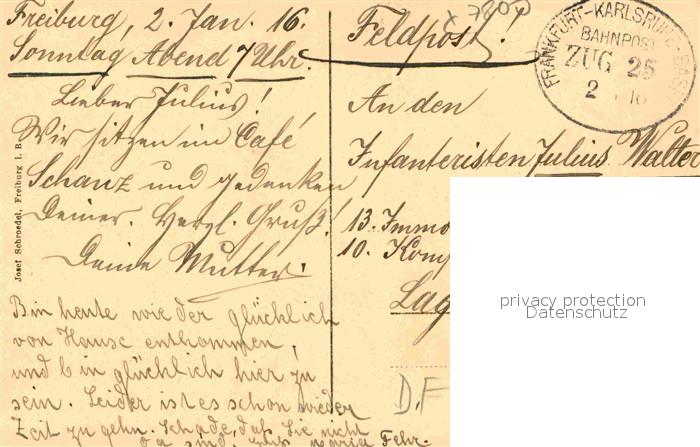 Freiburg, 2. Jan. 16.
Sonntag Abend 7 Uhr.
Lieber Julius!
Wir sitzen im Café
Schanz und gedenken
Deiner. Herzl. Gruß!
Deine Mutter.
Bin heute wieder glücklich
von Hause entkommen,
und bin glücklich hier zu
sein. Leider ist es schon wieder
Zeit zu gehn. Schade, daß Sie nicht
da sind. Maria Fehr.
Josef Schroedel, Freiburg i. B.
x 7800
Feldpost!
FRANKFURT-KARLSRUHE-BASEL
BAHNPOST
ZUG 25
2 16
An den
Infanteristen Julius Walter
13. Immo
10. Komp
Lag
D.F
privacy protection
Datenschutz